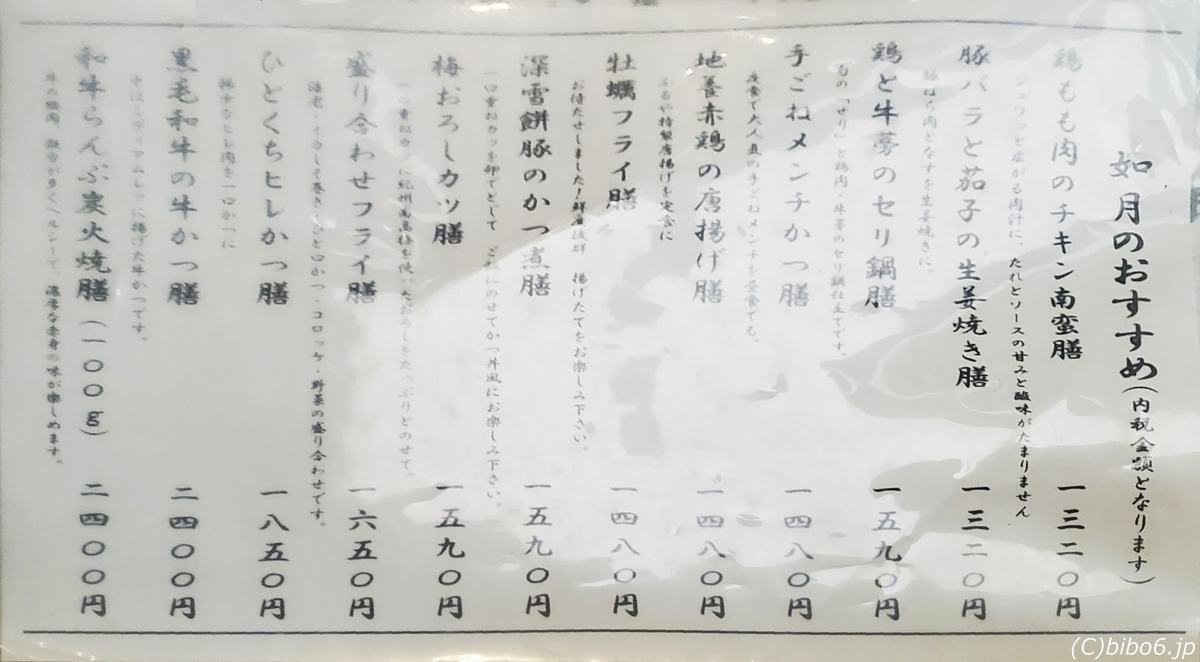 如月のおすすめ(内税金額となります)
鶏もも肉のチキン南蛮膳 一三二〇円
ジュワッと広がる肉汁に、たれとソースの甘みと酸味がたまりません
豚バラと茄子の生姜焼き膳 一三二〇円
豚ばら肉となすを生姜焼きに。
鶏と牛蒡のセリ鍋膳 一五九〇円
旬の「せり」と鶏肉・牛蒡のセリ鍋仕立てです。
手ごねメンチかつ膳 一四八〇円
夜食で大人気の手ごねメンチを昼食でも。
地養赤鶏の唐揚げ膳 一四八〇円
特製唐揚げを定食に
牡蠣フライ膳 一四八〇円
お待たせしました!鮮度抜群 揚げたてをお楽しみ下さい。
深雪餅豚のかつ煮膳 一五九〇円
一口重ねカツを卵でとじて ご飯にのせてかつ丼風にお楽しみ下さい。
梅おろしカツ膳 一五九〇円
一口重ねカツに紀州南高梅を使ったおろしをたっぷりとのせて。
盛り合わせフライ膳 一六五〇円
海老・イカしそ巻き・ひと口かつ・コロッケ・野菜の盛り合わせです。
ひとくちヒレかつ膳 一八五〇円
稀少なヒレ肉を一口かつに
黒毛和牛の牛かつ膳 二四〇〇円
ミディアムレアに揚げた牛かつです。
和牛らんぷ炭火焼膳(一〇〇g) 二四〇〇円
牛の腰肉 鉄分が多くヘルシーで、濃厚な赤身の味が楽しめます。
(C)bibo6.jp